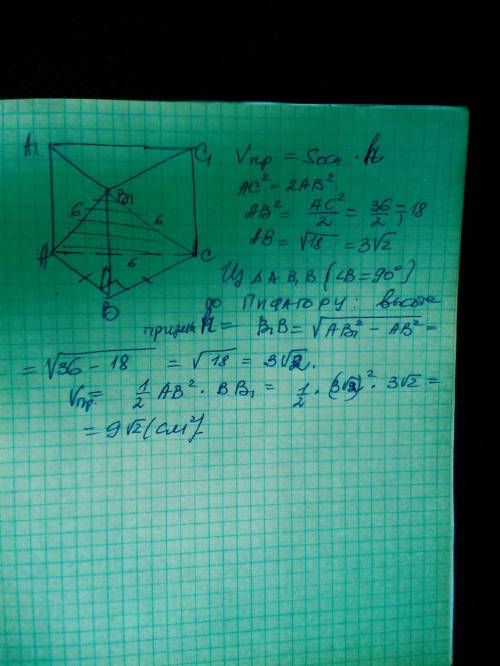 A₁
C₁
B₁
6
6
A
6
C
B
Vпр. = Sосн · h
AC² = 2AB²
AB² = AC²/2 = 36/2 = 18
AB = √18 = 3√2
Из ΔAB₁B (∠B = 90°)
по Пифагору: высота
призмы h = B₁B = √(AB₁² − AB²) =
= √(36 − 18) = √18 = 3√2.
Vпр. = 1/2 AB² · BB₁ = 1/2 · (3√2)² · 3√2 =
= 9√2 (см²)